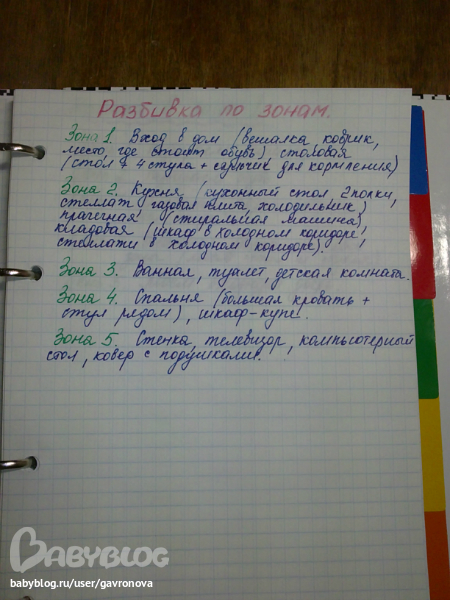 Разбивка по зонам.
Зона 1. Вход в дом (вешалка, коврик,
место, где стоит обувь) столовая
(стол + 4 стула + стульчик для кормления)
Зона 2. Кухня (кухонный стол, 2 полки,
стеллаж, газовая плита, холодильник)
прачечная (стиральная машина)
кладовая (шкаф в холодном коридоре,
стеллажи в холодном коридоре).
Зона 3. Ванная, туалет, детская комната.
Зона 4. Спальня (большая кровать +
стул рядом), шкаф-купе.
Зона 5. Стенка, телевизор, компьютерный
стол, ковер с подушками.
BABYBLOG
babyblog.ru/user/gavronova